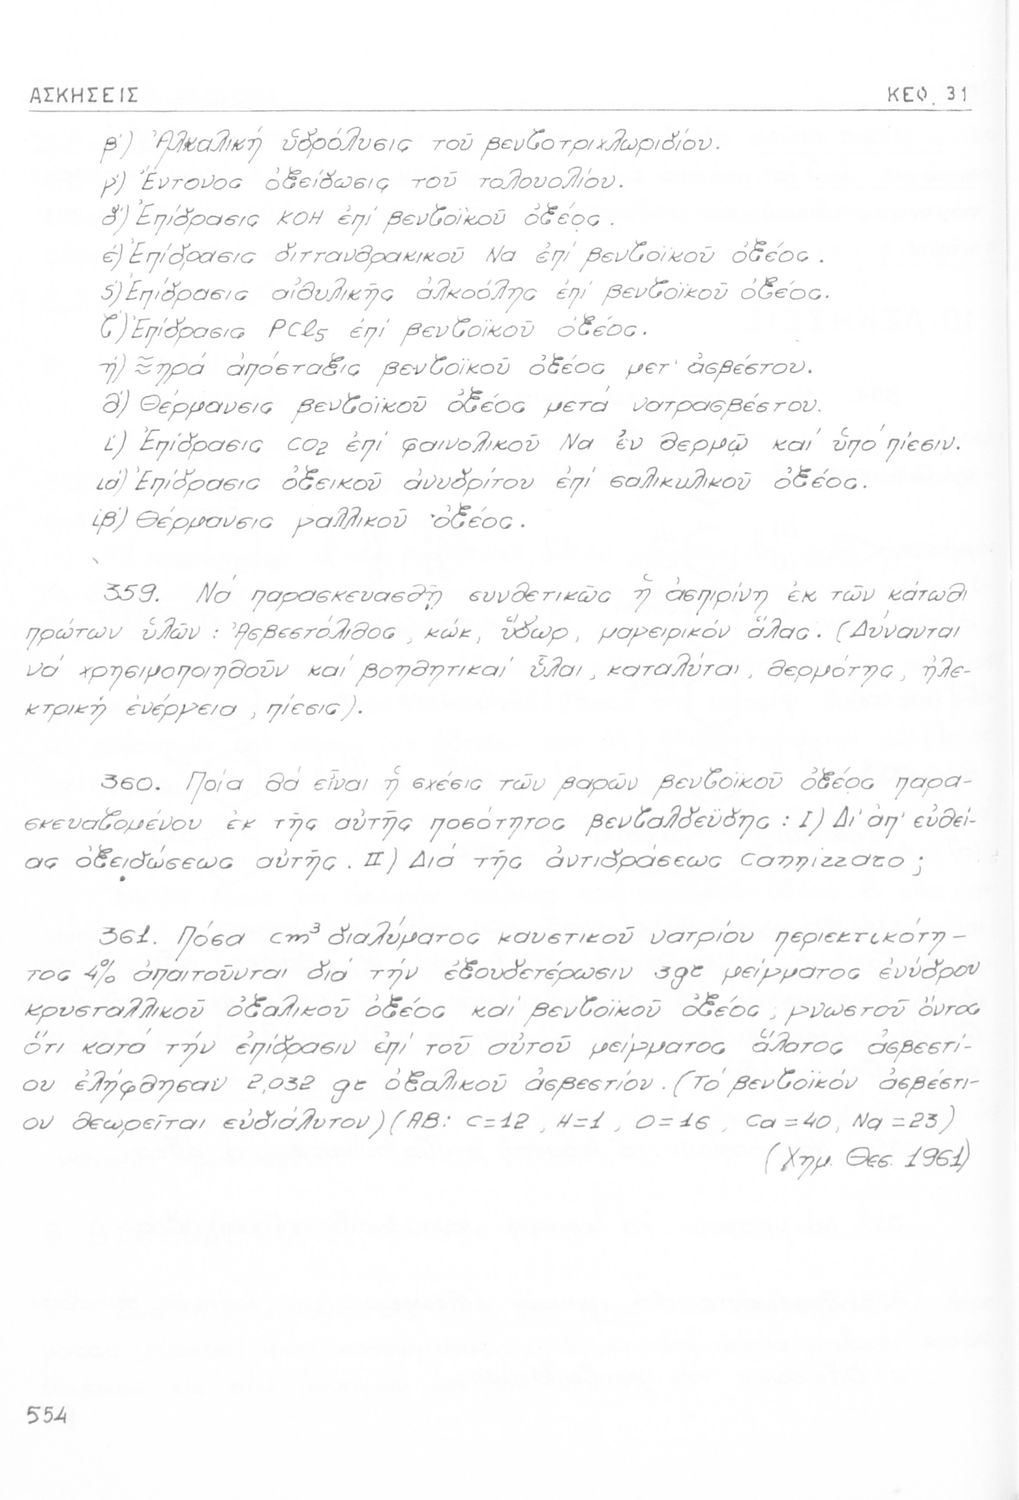 ΑΣΚΗΣΕΙΣ ΚΕΦ. 31
β') Ἀλκαλική ὑδρόλυσις τοῦ βενζοτριχλωριδίου.
γ') Ἔντονος ὀξείδωσις τοῦ τολουολίου.
δ') Ἐπίδρασις KOH ἐπί βενζοϊκοῦ ὀξέος.
έ) Ἐπίδρασις διττανθρακικοῦ Na ἐπί βενζοϊκοῦ ὀξέος.
ς') Ἐπίδρασις αἰθυλικῆς ἀλκοόλης ἐπί βενζοϊκοῦ ὀξέος.
ζ') Ἐπίδρασις PCl₅ ἐπί βενζοϊκοῦ ὀξέος.
ή) Ξηρά ἀπόσταξις βενζοϊκοῦ ὀξέος μετ' ἀσβέστου.
θ') Θέρμανσις βενζοϊκοῦ ὀξέος μετά νατρασβέστου.
ί) Ἐπίδρασις CO₂ ἐπί φαινολικοῦ Na ἐν θερμῷ καί ὑπό πίεσιν.
ιά) Ἐπίδρασις ὀξεικοῦ ἀνυδρίτου ἐπί σαλικυλικοῦ ὀξέος.
ιβ') Θέρμανσις γαλλικοῦ ὀξέος.
359. Νά παρασκευασθῇ συνθετικῶς ἡ ἀσπιρίνη ἐκ τῶν κάτωθι
πρώτων ὑλῶν : Ἀσβεστόλιθος, κώκ, ὕδωρ, μαγειρικόν ἅλας. (Δύνανται
νά χρησιμοποιηθοῦν καί βοηθητικαί ὗλαι, καταλύται, θερμότης, ἠλε-
κτρική ἐνέργεια, πίεσις).
360. Ποία θά εἶναι ἡ σχέσις τῶν βαρῶν βενζοϊκοῦ ὀξέος παρα-
σκευαζομένου ἐκ τῆς αὐτῆς ποσότητος βενζαλδεΰδης : I) Δι' ἀπ' εὐθεί-
ας ὀξειδώσεως αὐτῆς. II) Διά τῆς ἀντιδράσεως Cannizzaro ;
361. Πόσα cm³ διαλύματος καυστικοῦ νατρίου περιεκτικότη-
τος 4% ἀπαιτοῦνται διά τήν ἐξουδετέρωσιν 3gr μείγματος ἐνύδρου
κρυσταλλικοῦ ὀξαλικοῦ ὀξέος καί βενζοϊκοῦ ὀξέος, γνωστοῦ ὄντος
ὅτι κατά τήν ἐπίδρασιν ἐπί τοῦ αὐτοῦ μείγματος ἅλατος ἀσβεστί-
ου ἐλήφθησαν 2,032 gr ὀξαλικοῦ ἀσβεστίου. (Τό βενζοϊκόν ἀσβέστι-
ον θεωρεῖται εὐδιάλυτον) (ΑΒ: C=12, H=1, O=16, Ca=40, Na=23)
(Χημ. Θεσ. 1961)
554